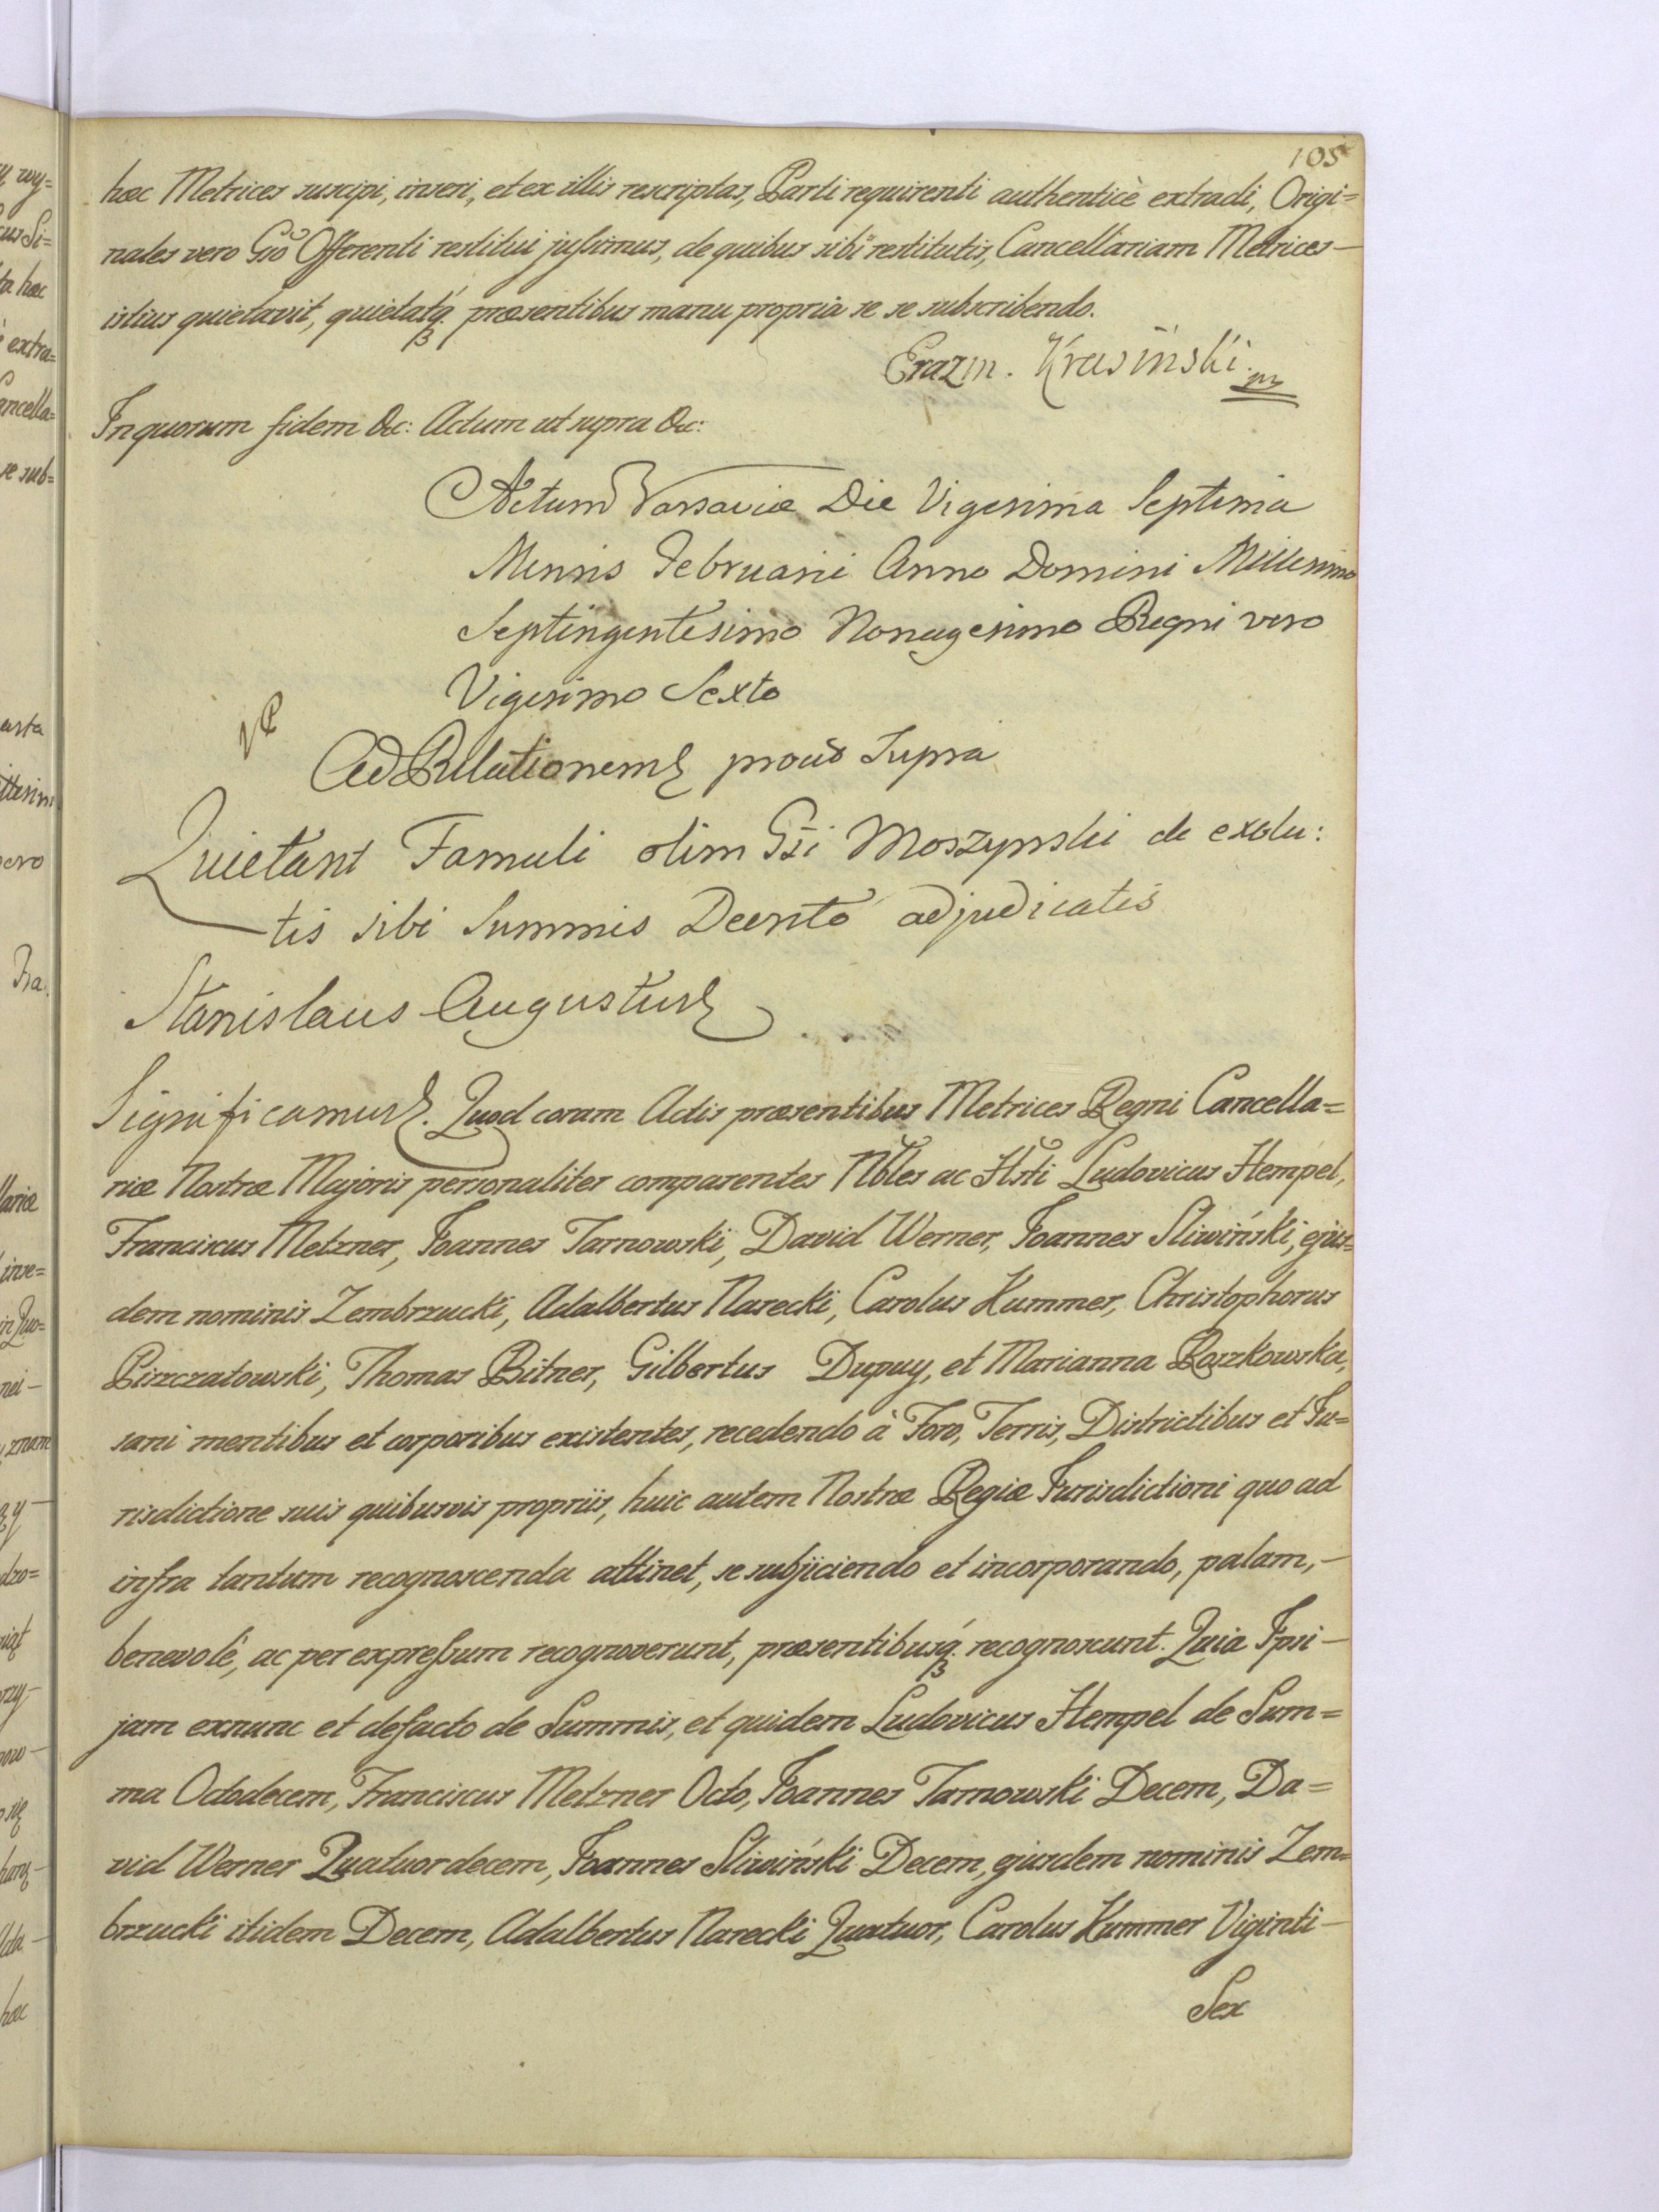 105
hæc Metrices suscipi, inseri, et ex illis rescriptas, Parti requirenti authenticè extradi, Origi=
nales vero Gso Offerenti restitui jussimus, de quibus sibi restitutis, Cancellariam Metrices —
istius quietavit, quietatq́ præsentibus manu propria se se subscribendo.
Erazm. Krasiński mp
In quorum fidem &c: Actum ut supra &c:
Actum Varsaviæ Die Vigesima Septima
Mensis Februarii Anno Domini Millesimo
Septingentesimo Nonagesimo Regni vero
Vigesimo Sexto
Ad Relationem prout Supra
Quietant Famuli olim Gsi Moszynski de exolu:
tis sibi Summis Decrto adjudicatis
Stanislaus Augustus
Significamus. Quod coram Actis præsentibus Metrices Regni Cancella=
riæ Nostræ Majoris personaliter comparentes Nbles ac Hsti Ludovicus Hempel,
Franciscus Metzner, Joannes Tarnowski, David Werner, Joannes Sliwiński, ejus=
dem nominis Zembrzucki, Adalbertus Narecki, Carolus Kummer, Christophorus
Piszczatowski, Thomas Bitner, Gilbertus Dupuy, et Marianna Roszkowska,
sani mentibus et corporibus existentes, recedendo à Foro, Terris, Districtibus et Ju=
risdictione suis quibusvis propriis, huic autem Nostræ Regiæ Jurisdictioni quo ad
infra tantum recognoscenda attinet, se subjiciendo et incorporando, palam, —
benevolè, ac per expressum recognoverunt, præsentibusq́ recognoscunt. Quia Ipsi —
jam exnunc et defacto de Summis, et quidem Ludovicus Hempel de Sum=
ma Octodecem, Franciscus Metzner Octo, Joannes Tarnowski Decem, Da=
vid Werner Quatuordecem, Joannes Sliwiński Decem, ejusdem nominis Zem=
brzucki itidem Decem, Adalbertus Narecki Quatuor, Carolus Kummer Viginti —
Sex